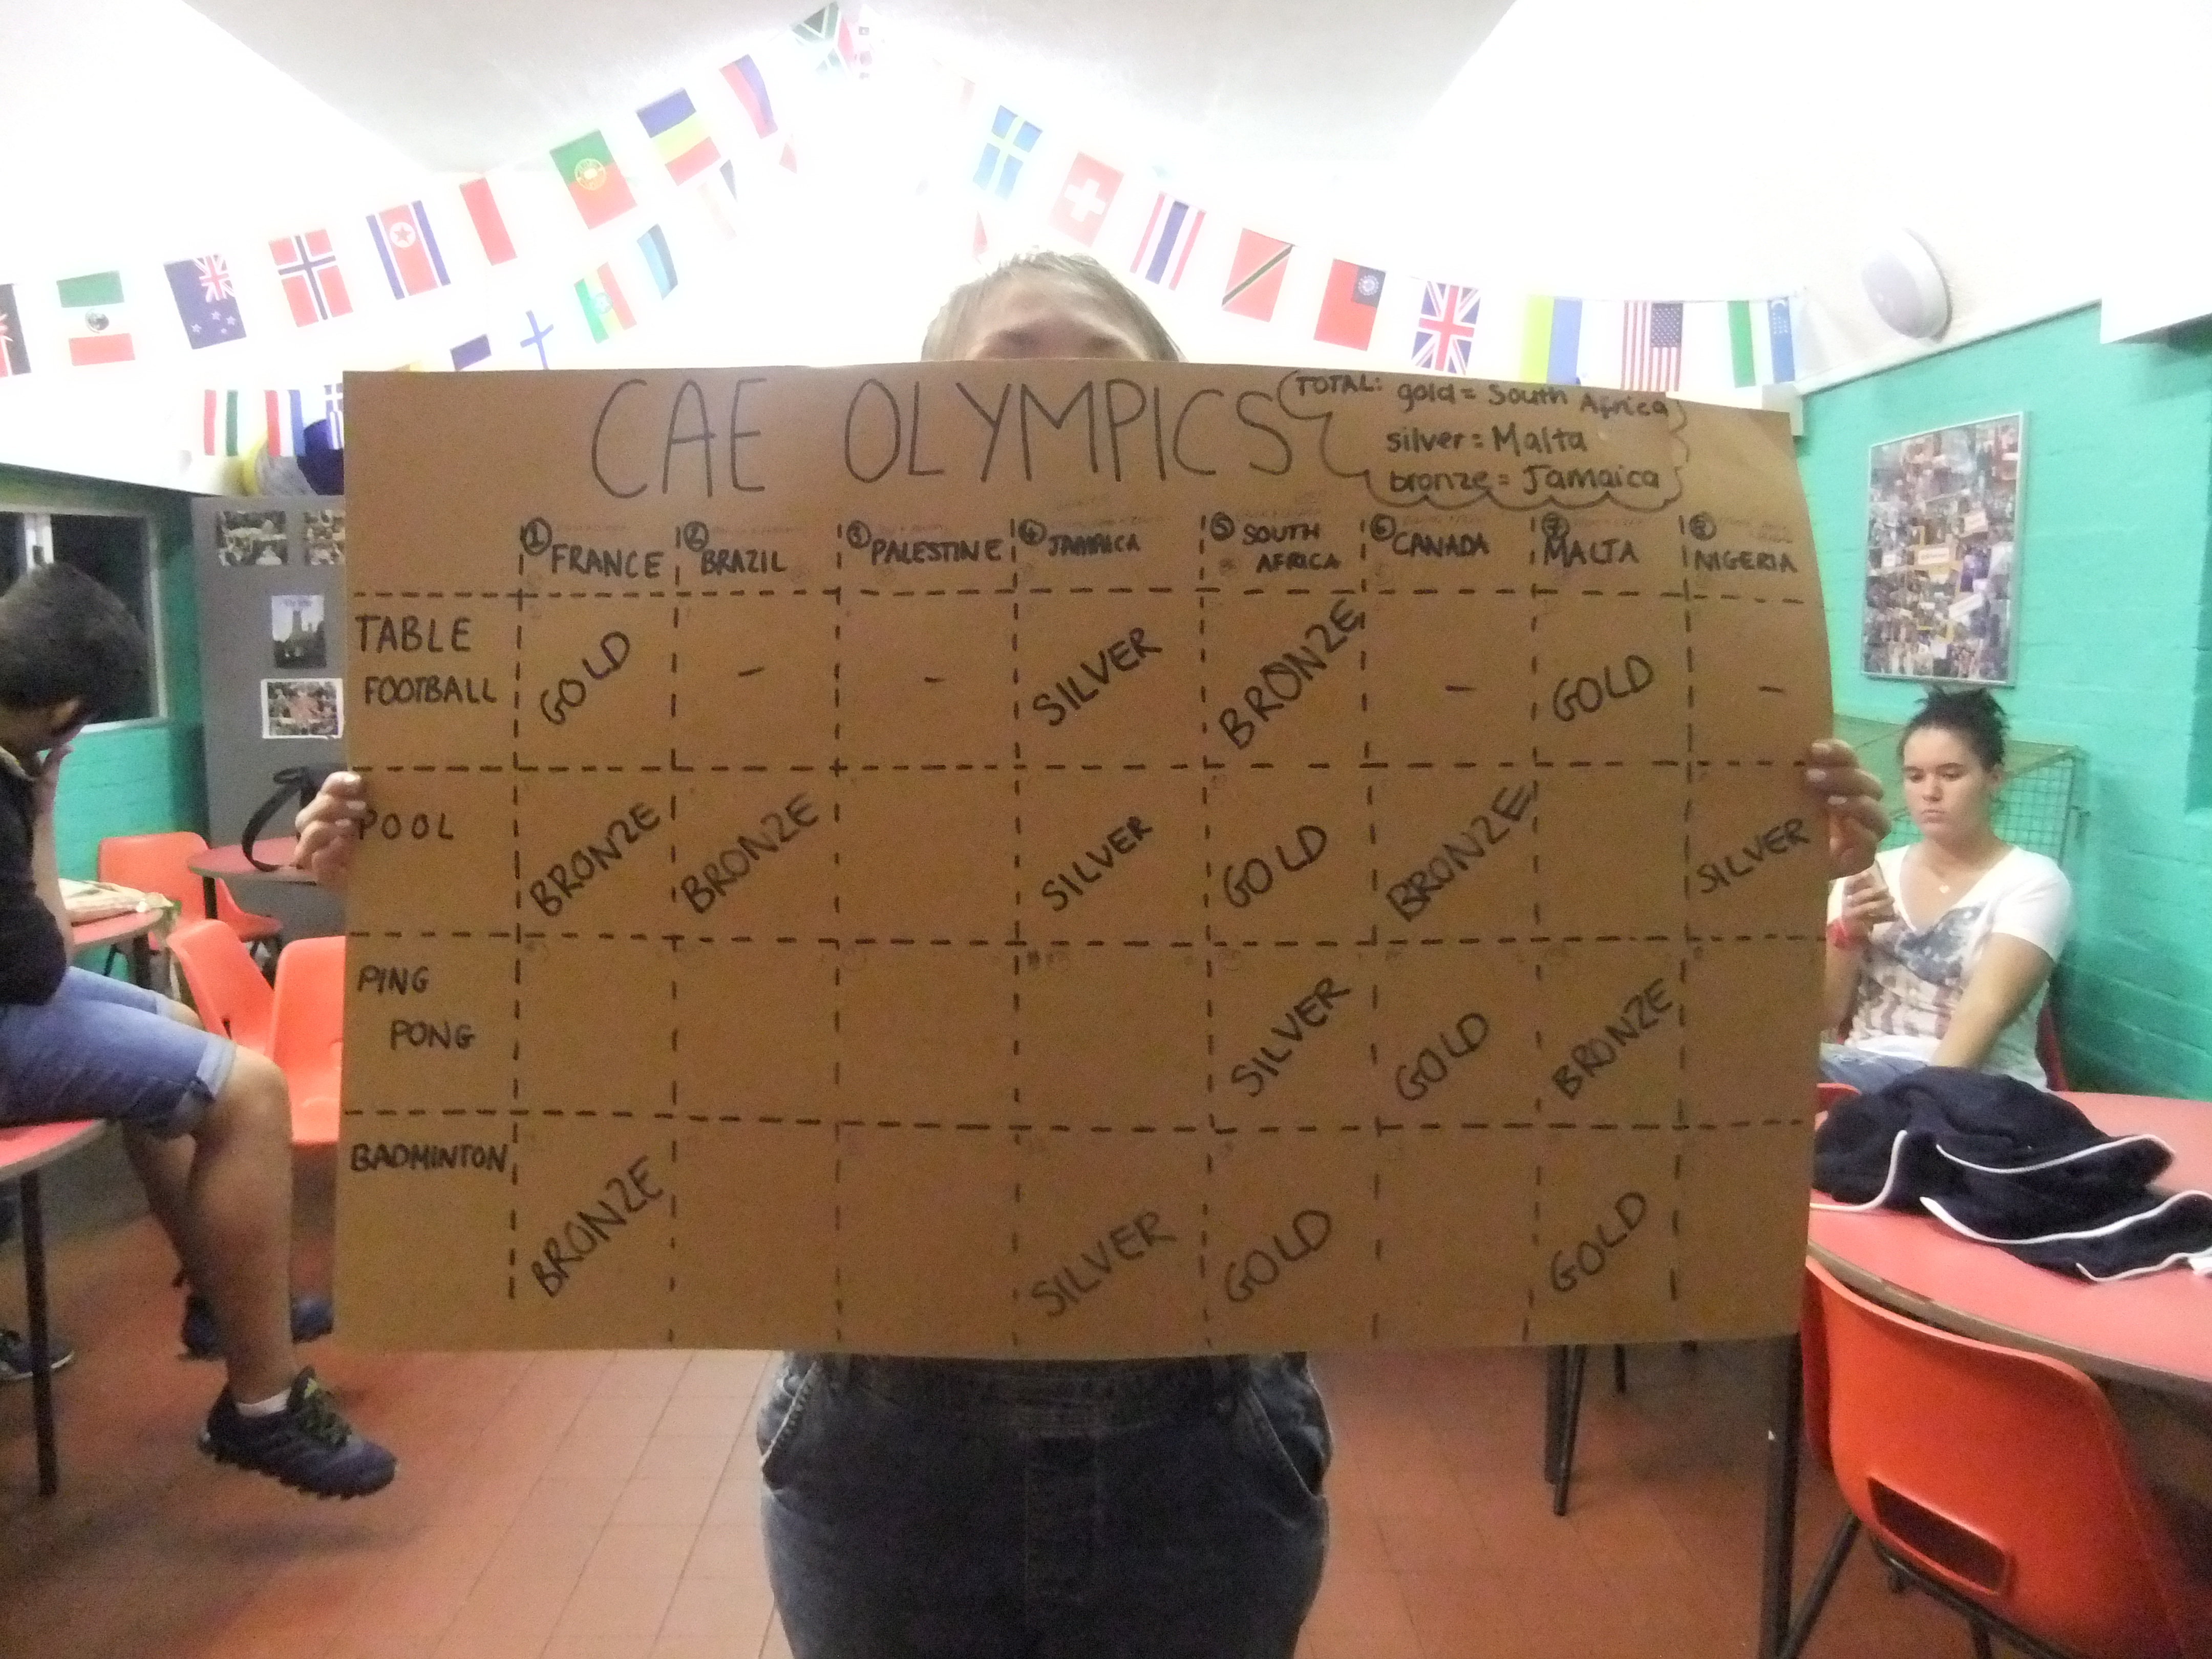 CAE OLYMPICS
TOTAL: gold = South Africa
silver = Malta
bronze = Jamaica
① FRANCE ② BRAZIL ③ PALESTINE ④ JAMAICA ⑤ SOUTH AFRICA ⑥ CANADA ⑦ MALTA ⑧ NIGERIA
TABLE FOOTBALL GOLD - - SILVER BRONZE - GOLD -
POOL BRONZE BRONZE SILVER GOLD BRONZE SILVER
PING PONG SILVER GOLD BRONZE
BADMINTON BRONZE SILVER GOLD GOLD